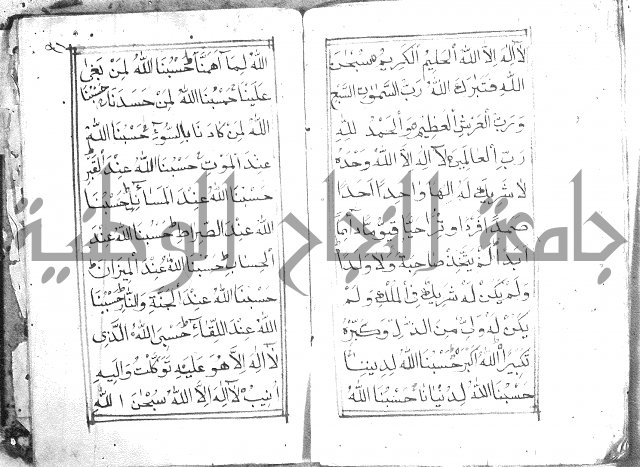 لا اله الا الله العليم الكريم سبحان
الله فتبارك الله رب السموات السبع
ورب العرش العظيم والحمد لله
رب العالمين لا اله الا الله وحده
لا شريك له الها واحدا احدا
صمدا فردا وترا حيا قيوما دائما
ابدا لم يتخذ صاحبة ولا ولدا
ولم يكن له شريك في الملك ولم
يكن له ولي من الذل وكبره
تكبيرا الله اكبر حسبنا الله لديننا
حسبنا الله لدنيانا حسبنا الله
الله لما اهمنا حسبنا الله لمن بغى
علينا حسبنا الله لمن حسدنا حسبنا
الله لمن كادنا بالسوء حسبنا الله
عند الموت حسبنا الله عند القبر
حسبنا الله عند المسائل حسبنا
الله عند الصراط حسبنا الله عند
الحساب حسبنا الله عند الميزان
حسبنا الله عند الجنة والنار حسبنا
الله عند اللقاء حسبي الله الذي
لا اله الا هو عليه توكلت واليه
انيب لا اله الا الله سبحان الله
جامعة النجاح الوطنية